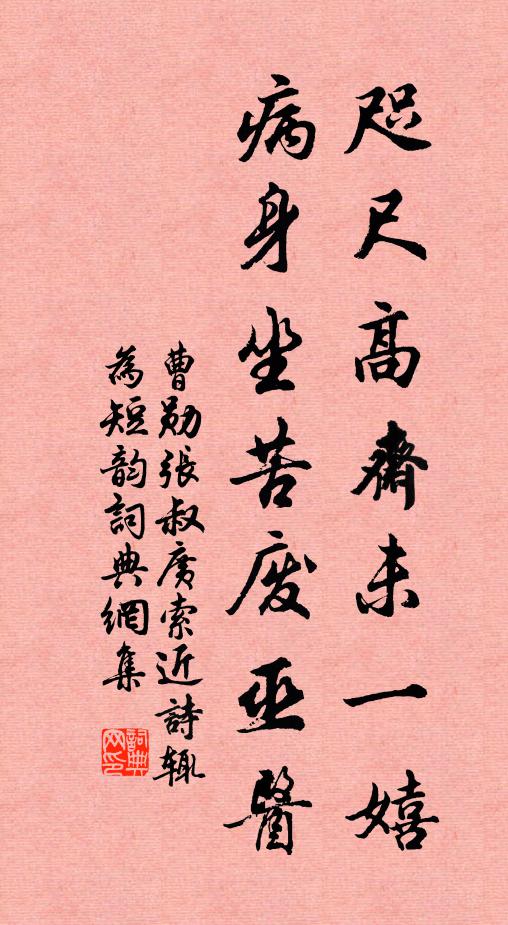 咫尺高齋未一嬉
病身坐苦废巫醫
曹勛張叔廣索近詩辄
為短韵詞典網集
詞典网印